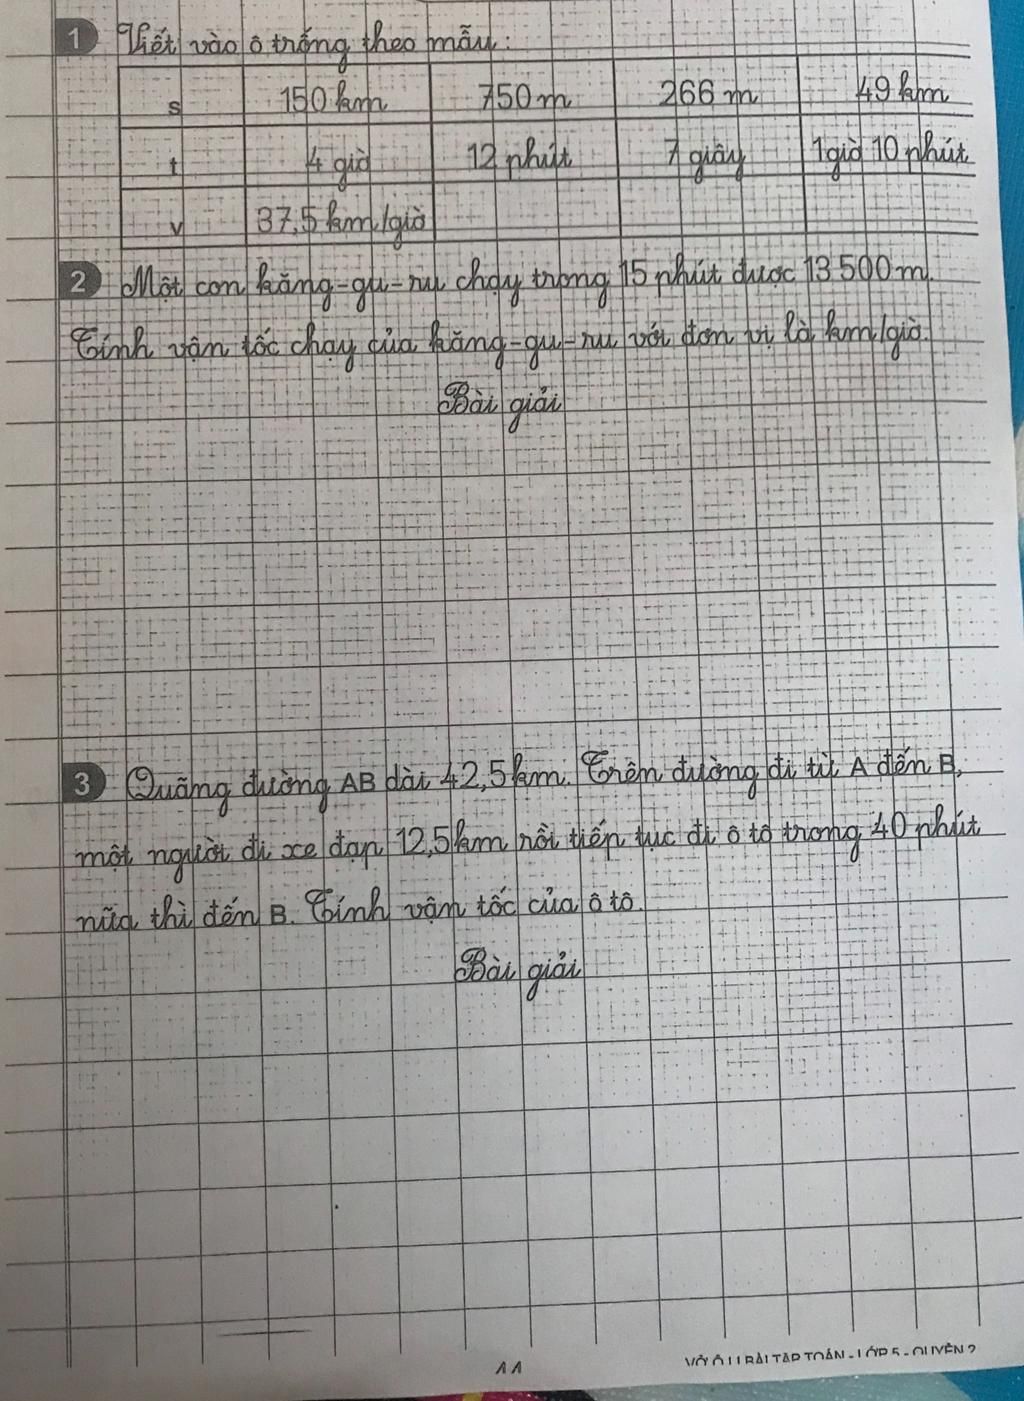 1 Viết vào ô trống theo mẫu:
s 150 km 750 m 266 m 49 km
t 4 giờ 12 phút 7 giây 1 giờ 10 phút
v 37,5 km/giờ
2 Một con kăng-gu-ru chạy trong 15 phút được 13 500 m.
Tính vận tốc chạy của kăng-gu-ru với đơn vị là km/giờ.
Bài giải
3 Quãng đường AB dài 42,5 km. Trên đường đi từ A đến B,
một người đi xe đạp 12,5 km rồi tiếp tục đi ô tô trong 40 phút
nữa thì đến B. Tính vận tốc của ô tô.
Bài giải
VỞ Ô LI BÀI TẬP TOÁN - LỚP 5 - QUYỂN 2